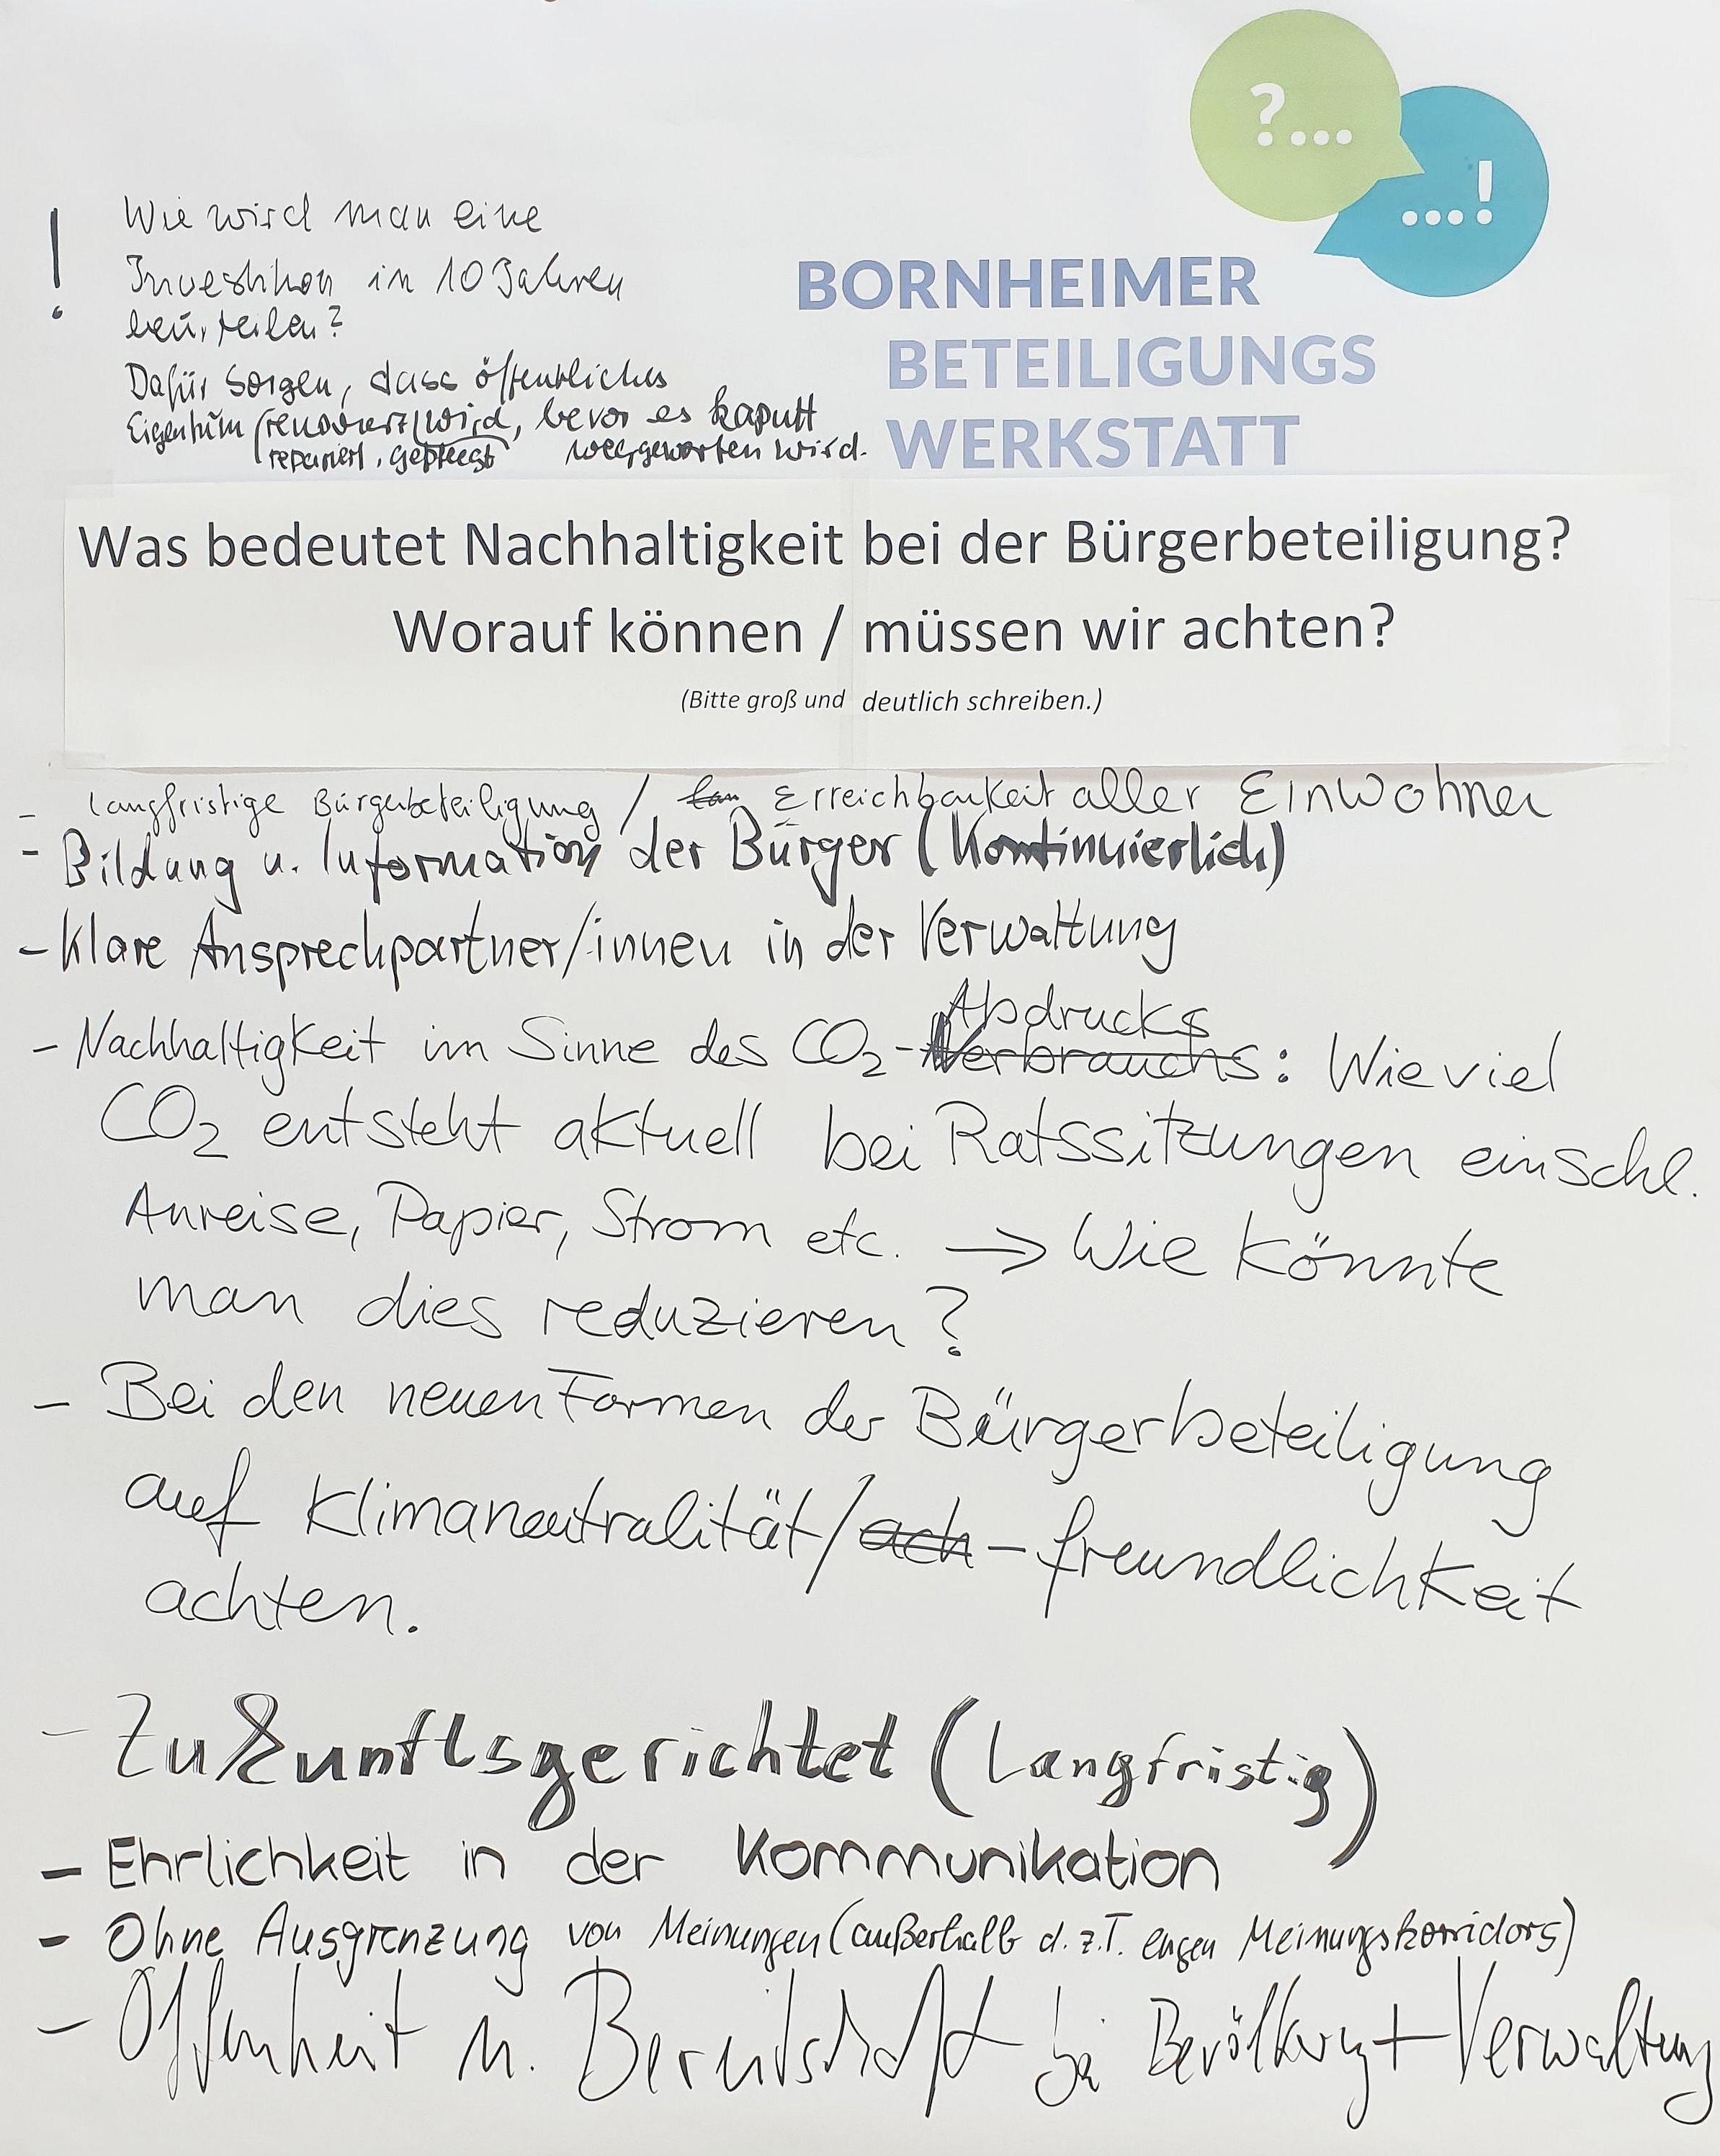 ?...
...!
! Wie wird man eine
Investition in 10 Jahren
beurteilen?
Dafür sorgen, dass öffentliches
Eigentum (renoviert/wird, bevor es kaputt
repariert, gepflegt weggeworfen wird.
BORNHEIMER
BETEILIGUNGS
WERKSTATT
Was bedeutet Nachhaltigkeit bei der Bürgerbeteiligung?
Worauf können / müssen wir achten?
(Bitte groß und deutlich schreiben.)
- langfristige Bürgerbeteiligung / lan Erreichbarkeit aller Einwohner
- Bildung u. Information der Bürger (Kontinuierlich)
- Klare Ansprechpartner/innen in der Verwaltung
Abdrucks
- Nachhaltigkeit im Sinne des CO2-Verbrauchs: Wieviel
CO2 entsteht aktuell bei Ratssitzungen einschl.
Anreise, Papier, Strom etc. → Wie könnte
man dies reduzieren?
- Bei den neuen Formen der Bürgerbeteiligung
auf Klimaneutralität/ach -freundlichkeit
achten.
- Zukunftsgerichtet (Langfristig)
- Ehrlichkeit in der Kommunikation
- Ohne Ausgrenzung von Meinungen (außerhalb d. z.T. engen Meinungskorridors)
- Offenheit u. Bereitschaft bei Bevölkerung + Verwaltung